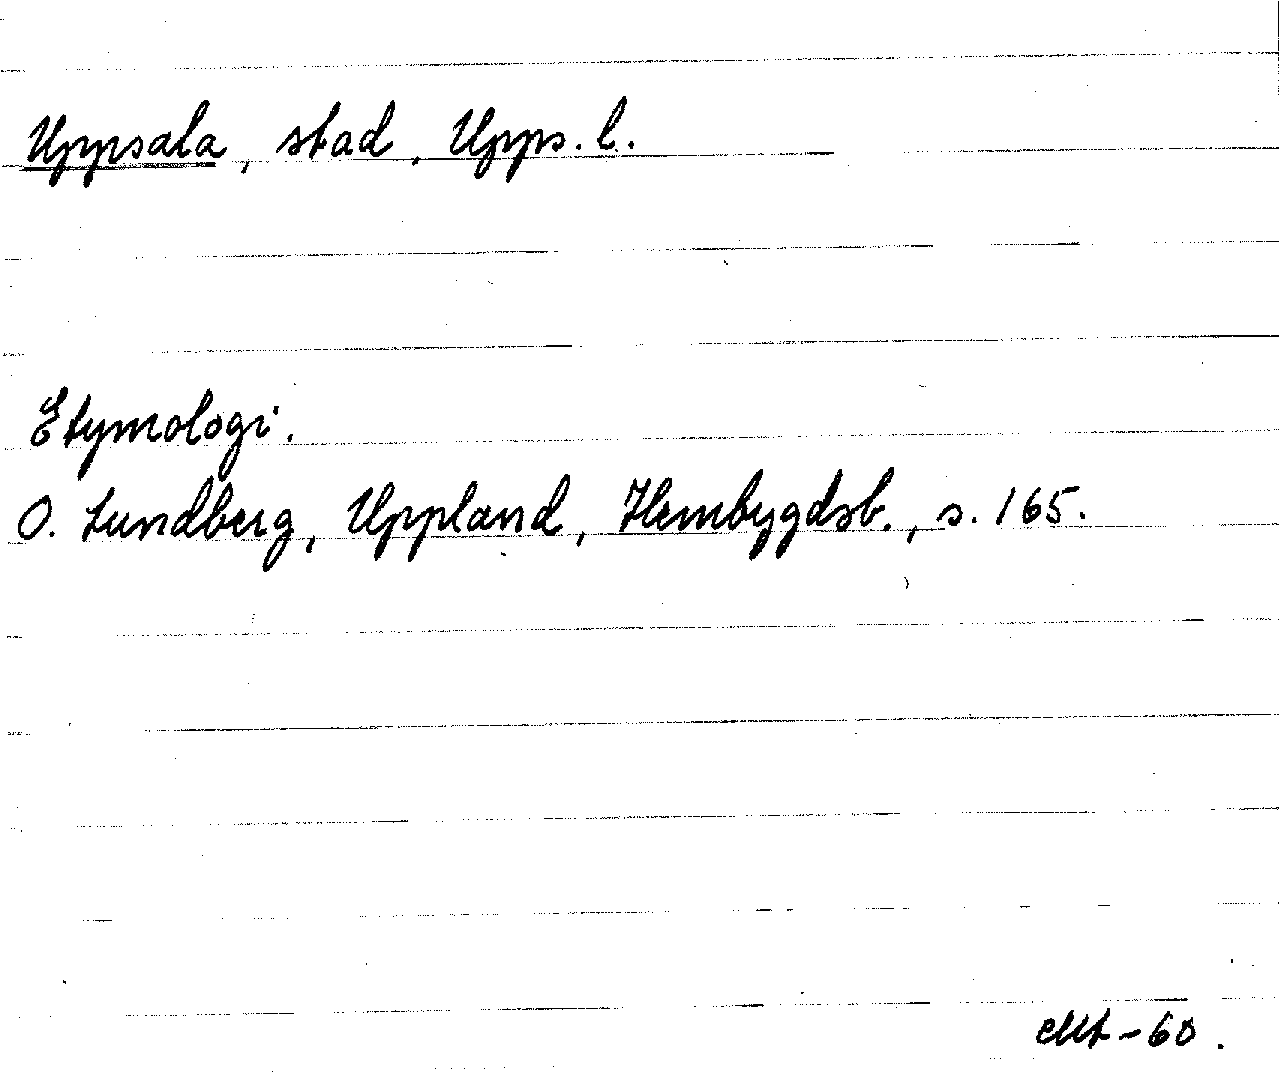 Uppsala, stad, Upps. l.
Etymologi.
O. Lundberg, Uppland, Hembygdsb., s. 165.
-60.